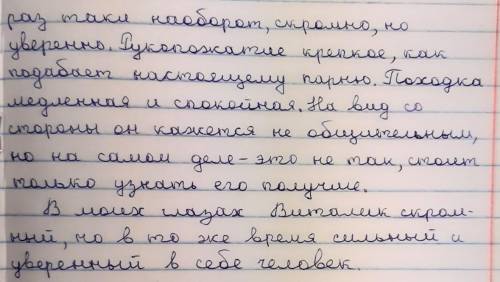 раз таки наоборот, скромно, но
уверенно. Рукопожатие крепкое, как
подабает настоещему парню. Походка
медленная и спокойная. На вид со
стороны он кажется не общительным,
но на самом деле - это не так, стоит
только узнать его получше.
В моих глазах Виталик скром-
ный, но в то же время сильный и
уверенный в себе человек.